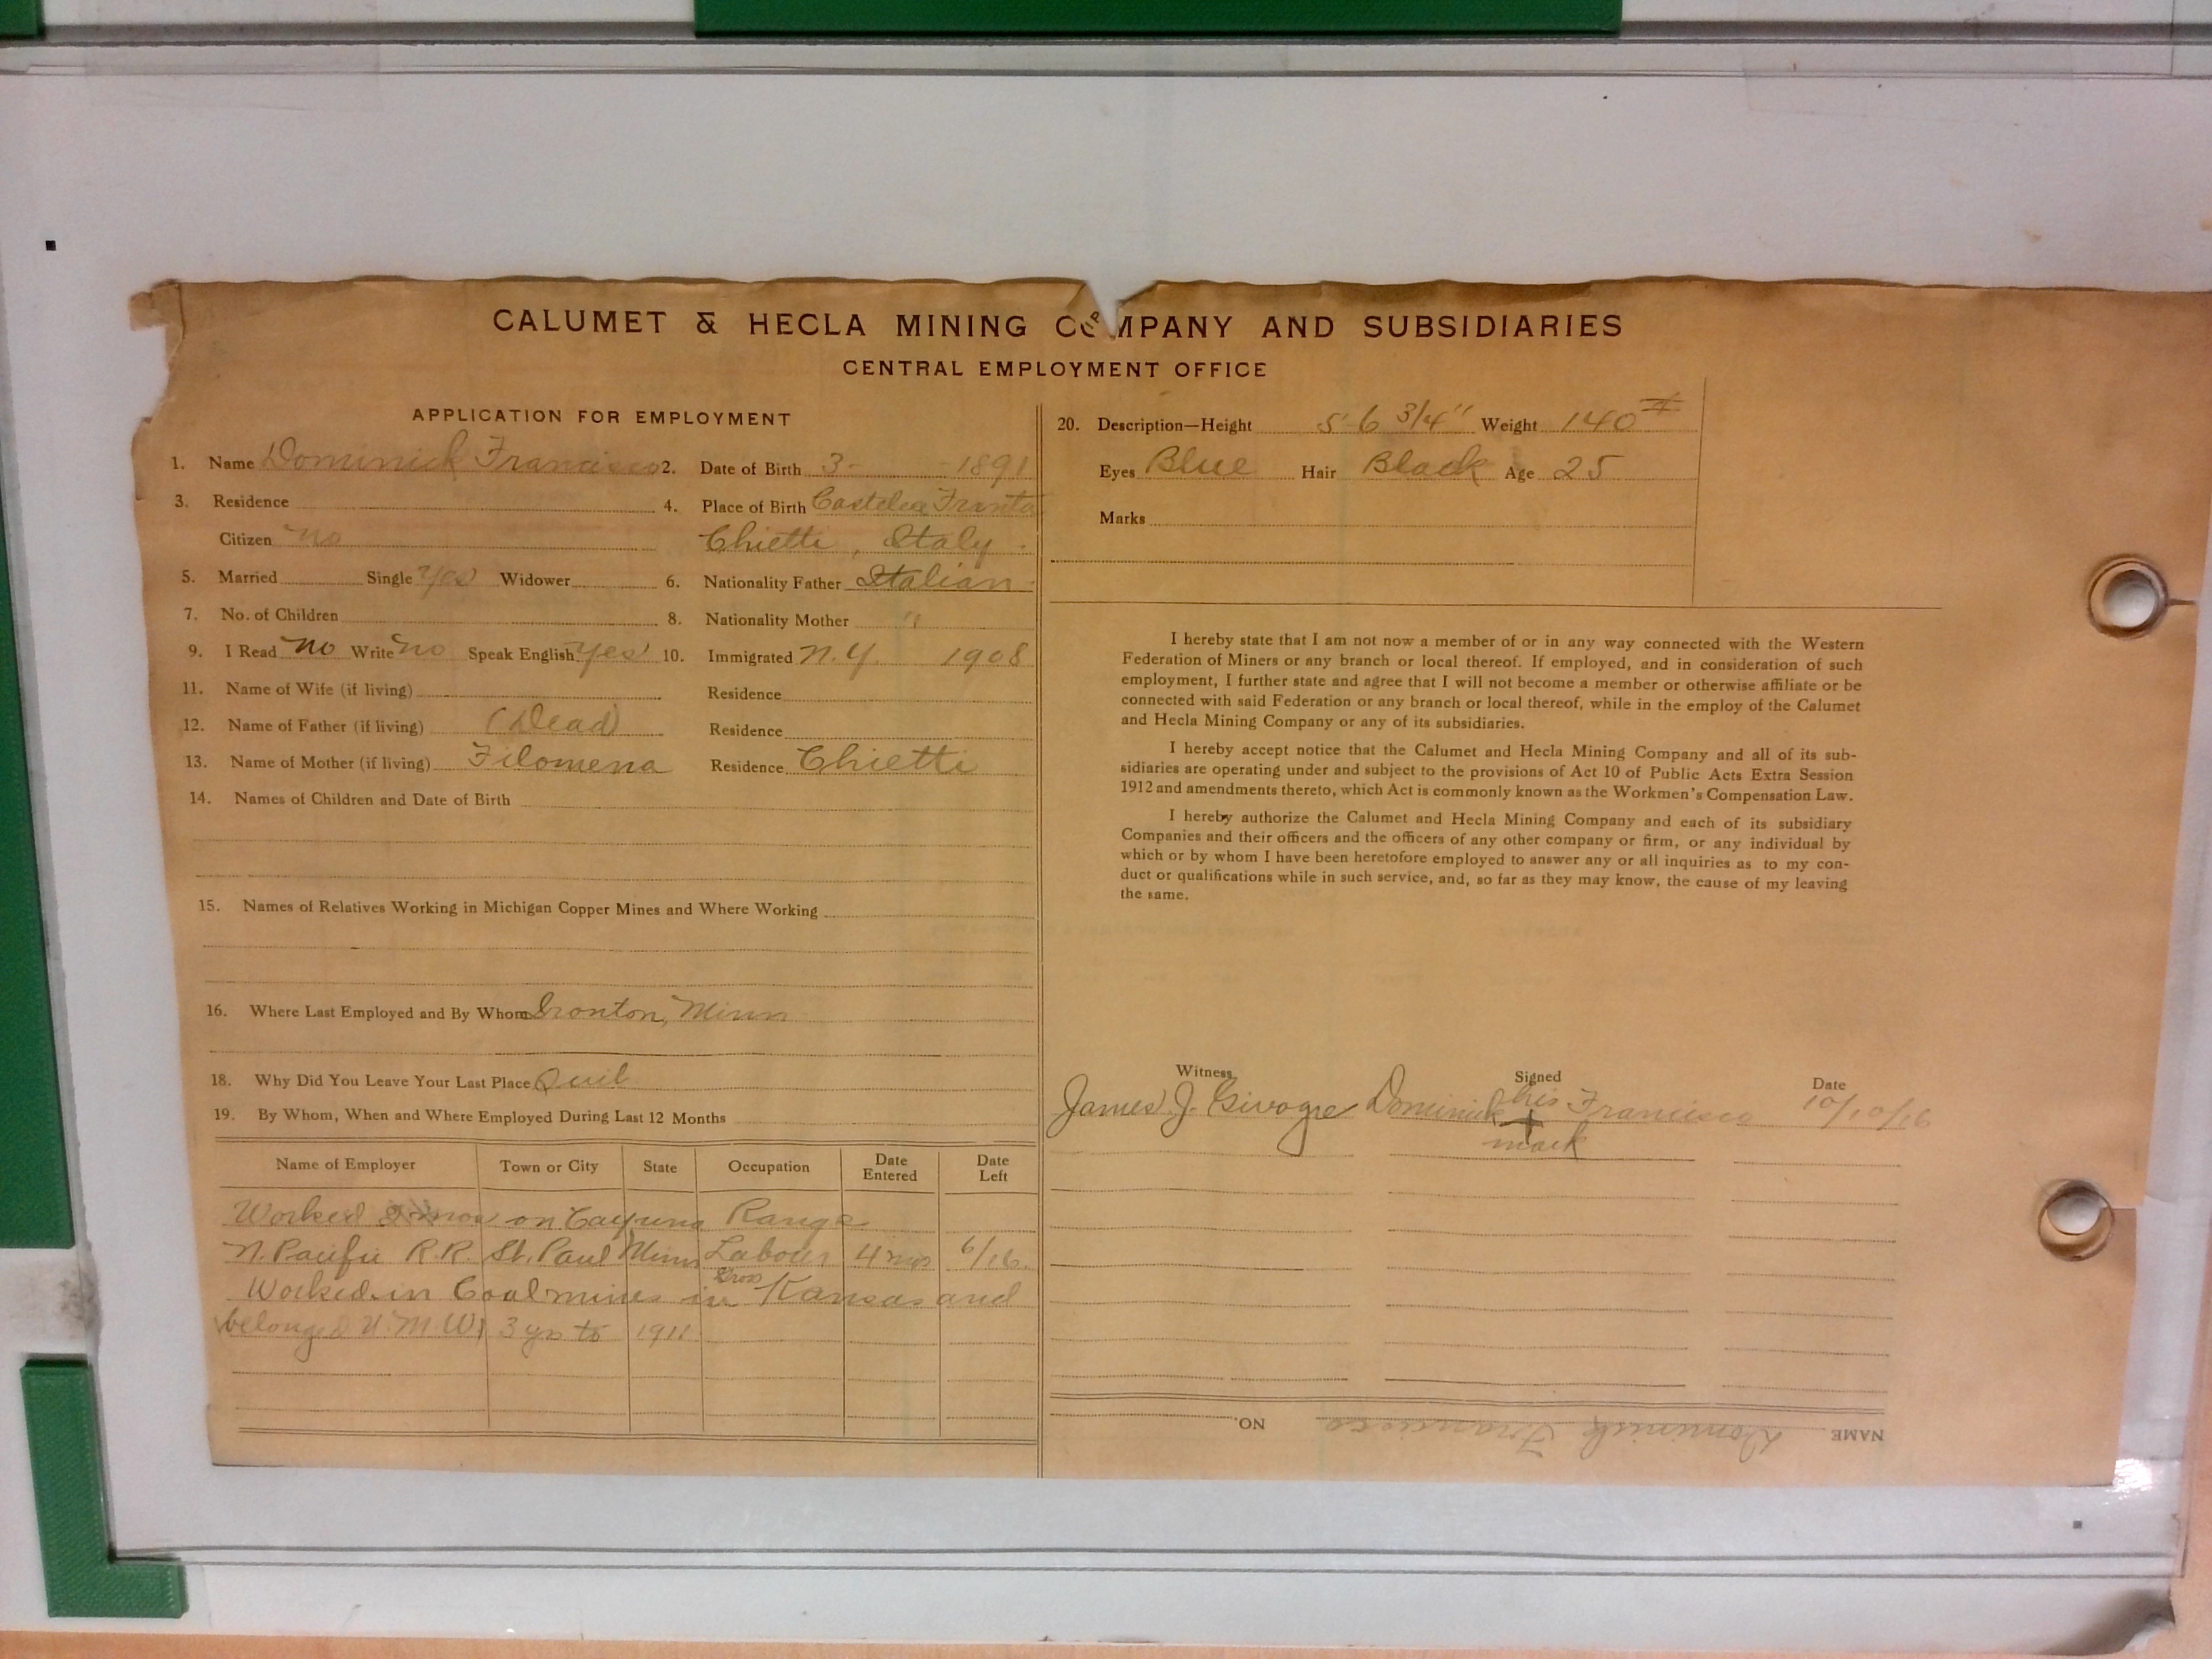 CALUMET & HECLA MINING COMPANY AND SUBSIDIARIES
CENTRAL EMPLOYMENT OFFICE
APPLICATION FOR EMPLOYMENT
1. Name Dominick Francisco 2. Date of Birth 3- -1891
3. Residence 4. Place of Birth
Citizen no Chietti, Italy.
5. Married Single Yes Widower 6. Nationality Father Italian
7. No. of Children 8. Nationality Mother "
9. I Read No Write No Speak English Yes 10. Immigrated N.Y. 1908
11. Name of Wife (if living) Residence
12. Name of Father (if living) (Dead) Residence
13. Name of Mother (if living) Filomena Residence Chietti
14. Names of Children and Date of Birth
15. Names of Relatives Working in Michigan Copper Mines and Where Working
16. Where Last Employed and By Whom Ironton, Minn
18. Why Did You Leave Your Last Place Quit
19. By Whom, When and Where Employed During Last 12 Months
Name of Employer Town or City State Occupation Date Entered Date Left
Worked on Cayuna Range
N. Pacific R.R. St. Paul Minn Labour 4 mos 6/16.
Worked in Coal mines in Kansas and
belonged U.M.W. 3 yrs to 1911
20. Description—Height 5-6 3/4" Weight 140 #
Eyes Blue Hair Black Age 25
Marks
I hereby state that I am not now a member of or in any way connected with the Western
Federation of Miners or any branch or local thereof. If employed, and in consideration of such
employment, I further state and agree that I will not become a member or otherwise affiliate or be
connected with said Federation or any branch or local thereof, while in the employ of the Calumet
and Hecla Mining Company or any of its subsidiaries.
I hereby accept notice that the Calumet and Hecla Mining Company and all of its sub-
sidiaries are operating under and subject to the provisions of Act 10 of Public Acts Extra Session
1912 and amendments thereto, which Act is commonly known as the Workmen's Compensation Law.
I hereby authorize the Calumet and Hecla Mining Company and each of its subsidiary
Companies and their officers and the officers of any other company or firm, or any individual by
which or by whom I have been heretofore employed to answer any or all inquiries as to my con-
duct or qualifications while in such service, and, so far as they may know, the cause of my leaving
the same.
Witness Signed Date
James J. Dominick his Francisco 10/10/16
mark
NAME Dominick Francisco NO.